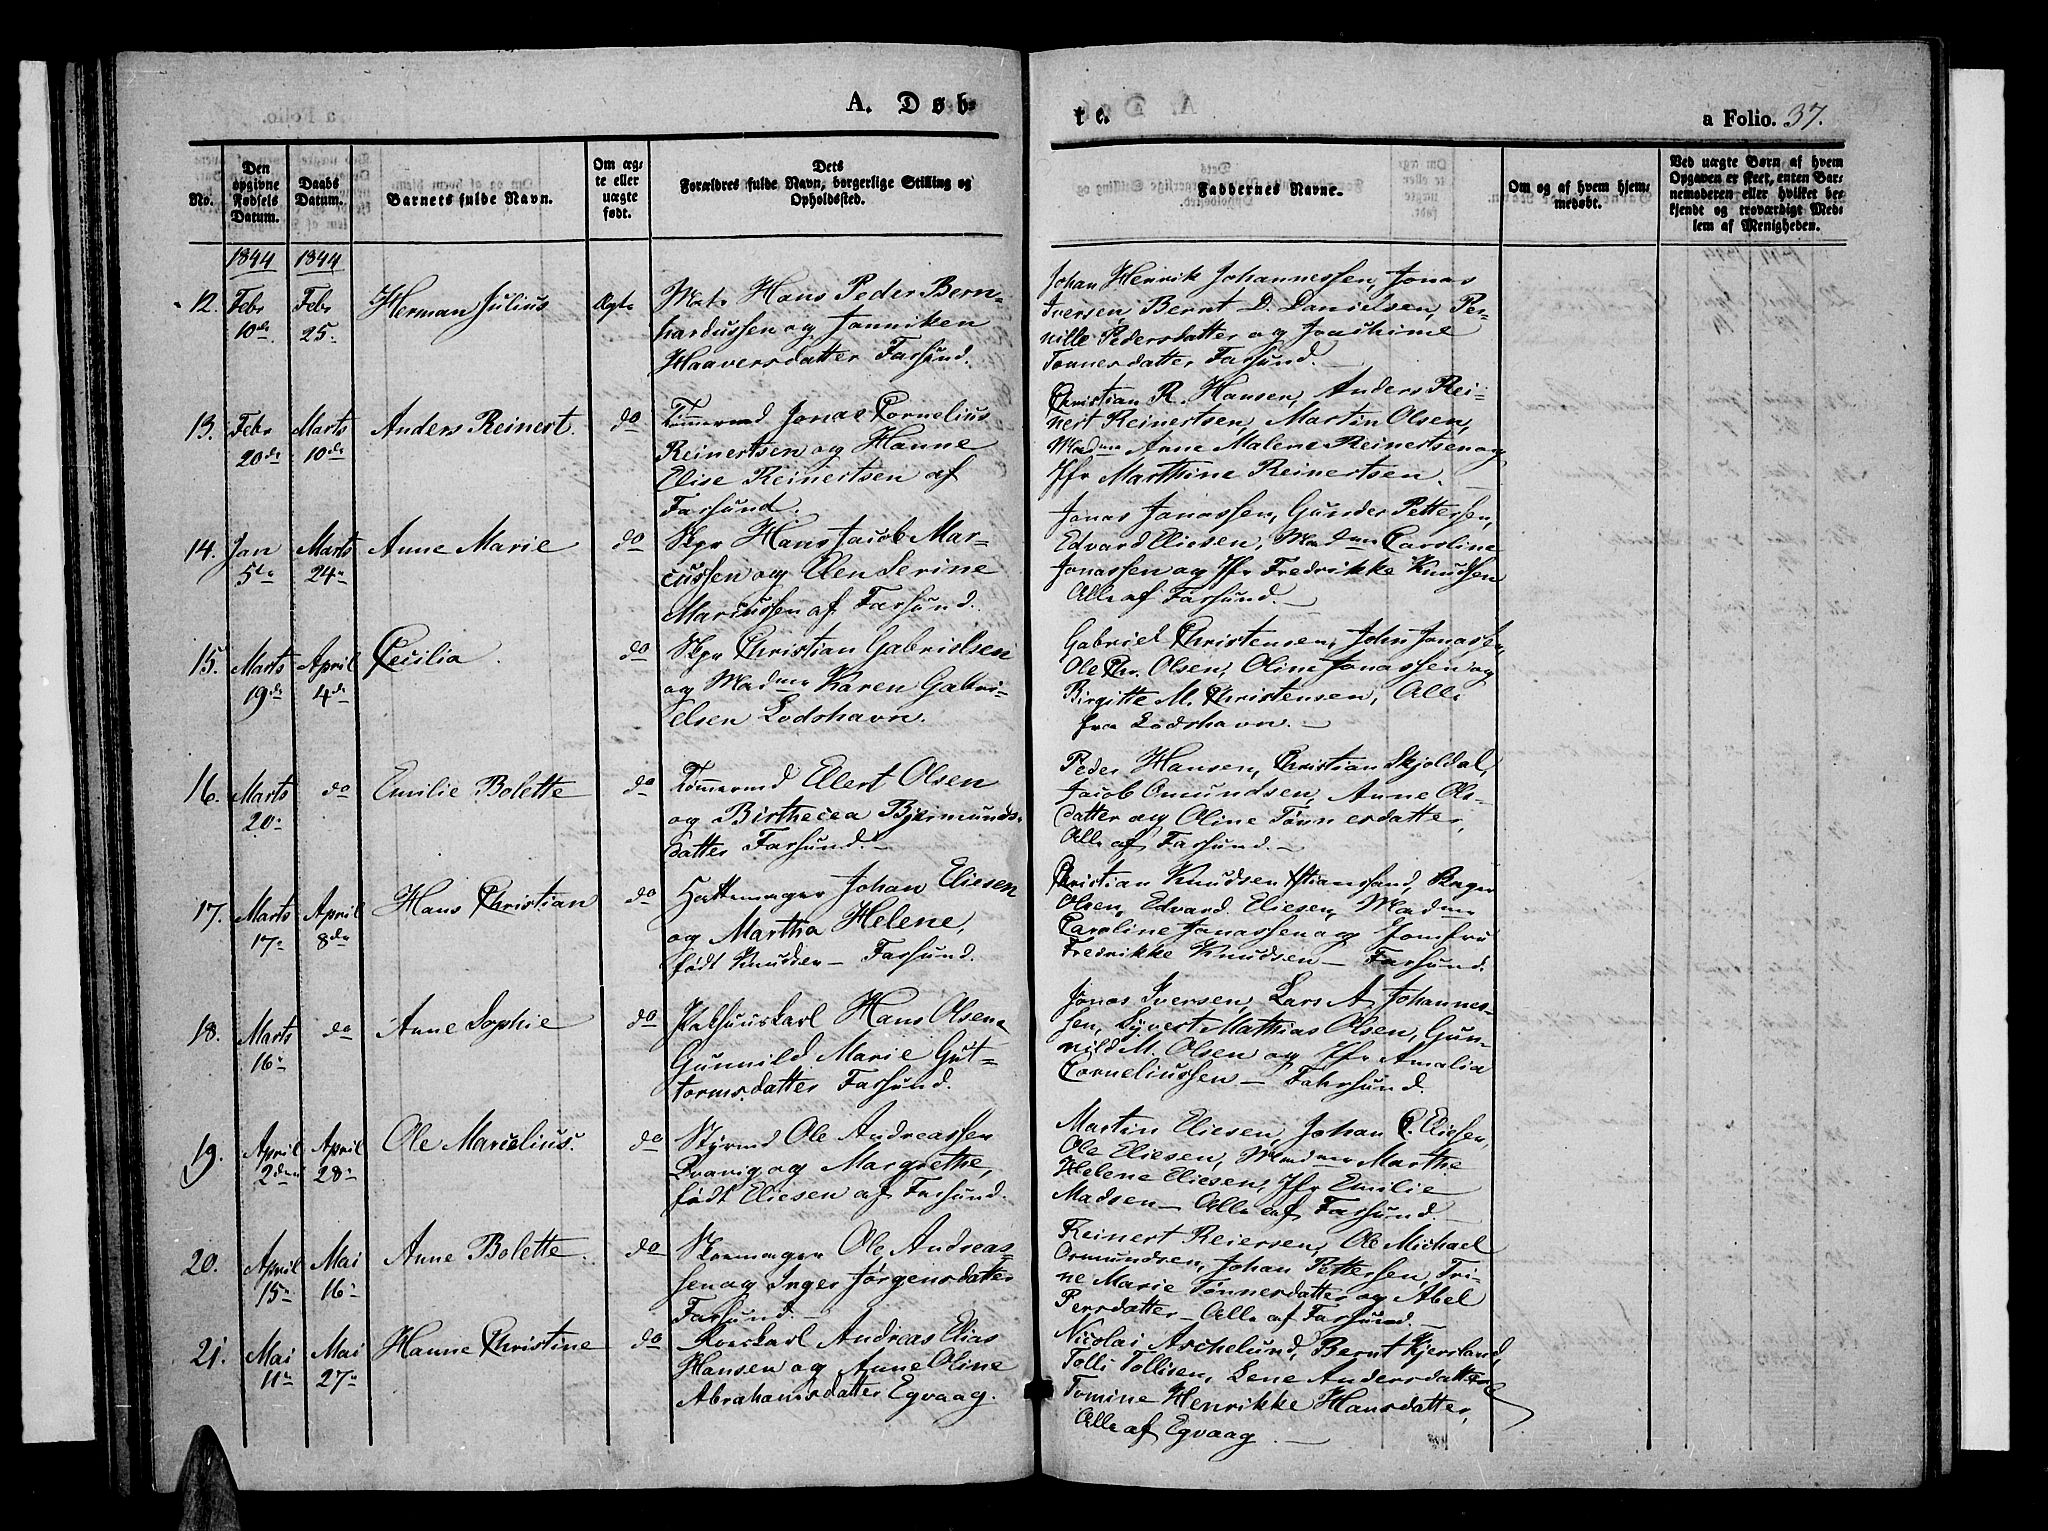 A. Døb-
No.
Den opgivne Fødsels Datum.
Daabs Datum.
Barnets fulde Navn.
Om ægte eller uægte født.
Dets
Forældres fulde Navn, borgerlige Stilling og
Opholdssted.
1844 1844
12. Febr 10de Febr 25. Herman Julius Ægte
Matr Hans Peder Bern-
hardussen og Janniken
Haaversdatter Farsund.
13. Febr 20de Marts 10de Anders Reinert. do
Tømmermd Jonas Cornelius
Reinertsen og Hanne
Elise Reinertsen af
Farsund.
14. Jan 5te Marts 24. Anne Marie do
Skpr Hans Jacob Mar-
cussen og Elen Serine
Marcussen af Farsund.
15. Marts 19de April 4de Cecilia. do
Skpr Christian Gabrielsen
og Madme Karen Gabri-
elsen Lodshavn.
16. Marts 20. do Emilie Bolette do
Tømmermd Ellert Olsen
og Birthecea Bjermunds-
datter Farsund.
17. Marts 17. April 8de Hans Christian do
Hattemager Johan Eliesen
og Martha Helene,
født Knudsen — Farsund.
18. Marts 16. do Anne Sophie do
Pakhuuskarl Hans Olsen
Gunnild Marie Gut-
tormsdatter Farsund.
19. April 2den April 28. Ole Marcelius. do
Styrmd Ole Andreassen
Qvavig og Margrethe,
født Eliesen af Farsund.
20. April 15. Mai 16. Anne Bolette. do
Skoemager Ole Andreas-
sen og Inger Jørgensdatter
Farsund.
21. Mai 11. Mai 27. Hanne Christine do
Andreas Elias
Hansen og Anne Oline
Abrahamsdatter Egvaag.
te.
a Folio. 37.
Faddernes Navne.
Om og af hvem hjem-
medøbt.
Ved uægte Børn af hvem
Opgaven er skeet, enten Bar-
nemoderen eller hvilket be-
kjendt og troværdigt Med-
lem af Menigheden.
Johan Henrik Johannessen, Jonas
Iversen, Bernt D. Danielsen, Per-
nille Pedersdatter og Joachime
Tønnesdatter, Farsund.
Christian R. Hansen, Anders Rei-
nert Reinertsen, Martin Olsen,
Madme Anne Malene Reinertsen og
Jfr Marthine Reinertsen.
Jonas Jonassen, Gunder Pettersen,
Edvard Eliesen, Madme Caroline
Jonassen og Jfr Fredrikke Knudsen
Alle af Farsund.
Gabriel Christensen, John Jonassen,
Ole Chr. Olsen, Oline Jonassen og
Birgitte M. Christensen, Alle
fra Lodshavn.
Peder Hansen, Christian Skjoldal,
Jacob Omundsen, Anne Ols-
datter og Oline Tønnesdatter,
Alle af Farsund.
Christian Knudsen Christiansand, Roger
Olsen, Edvard Eliesen, Madme
Caroline Jonassen og Jomfru
Fredrikke Knudsen — Farsund.
Jonas Iversen, Lars A. Johannes-
sen, Syvert Mathias Olsen, Gun-
nild M. Olsen og Jfr Amalia
Corneliussen — Fahrsund.
Martin Eliesen, Johan C. Eliesen,
Ole Eliesen, Madme Marthe
Helene Eliesen, Jfr Emilie
Madsen — Alle af Farsund.
Reinert Reiersen, Ole Michael
Ormundsen, Johan Pettersen, Tri-
ne Marie Tønnesdatter og Abel
Persdatter — Alle af Farsund.
Nicolai Aschelund, Bernt Kjersland,
Tolli Tollisen, Lene Andersdatter
Tomine Henrikke Hansdatter,
Alle af Egvaag.